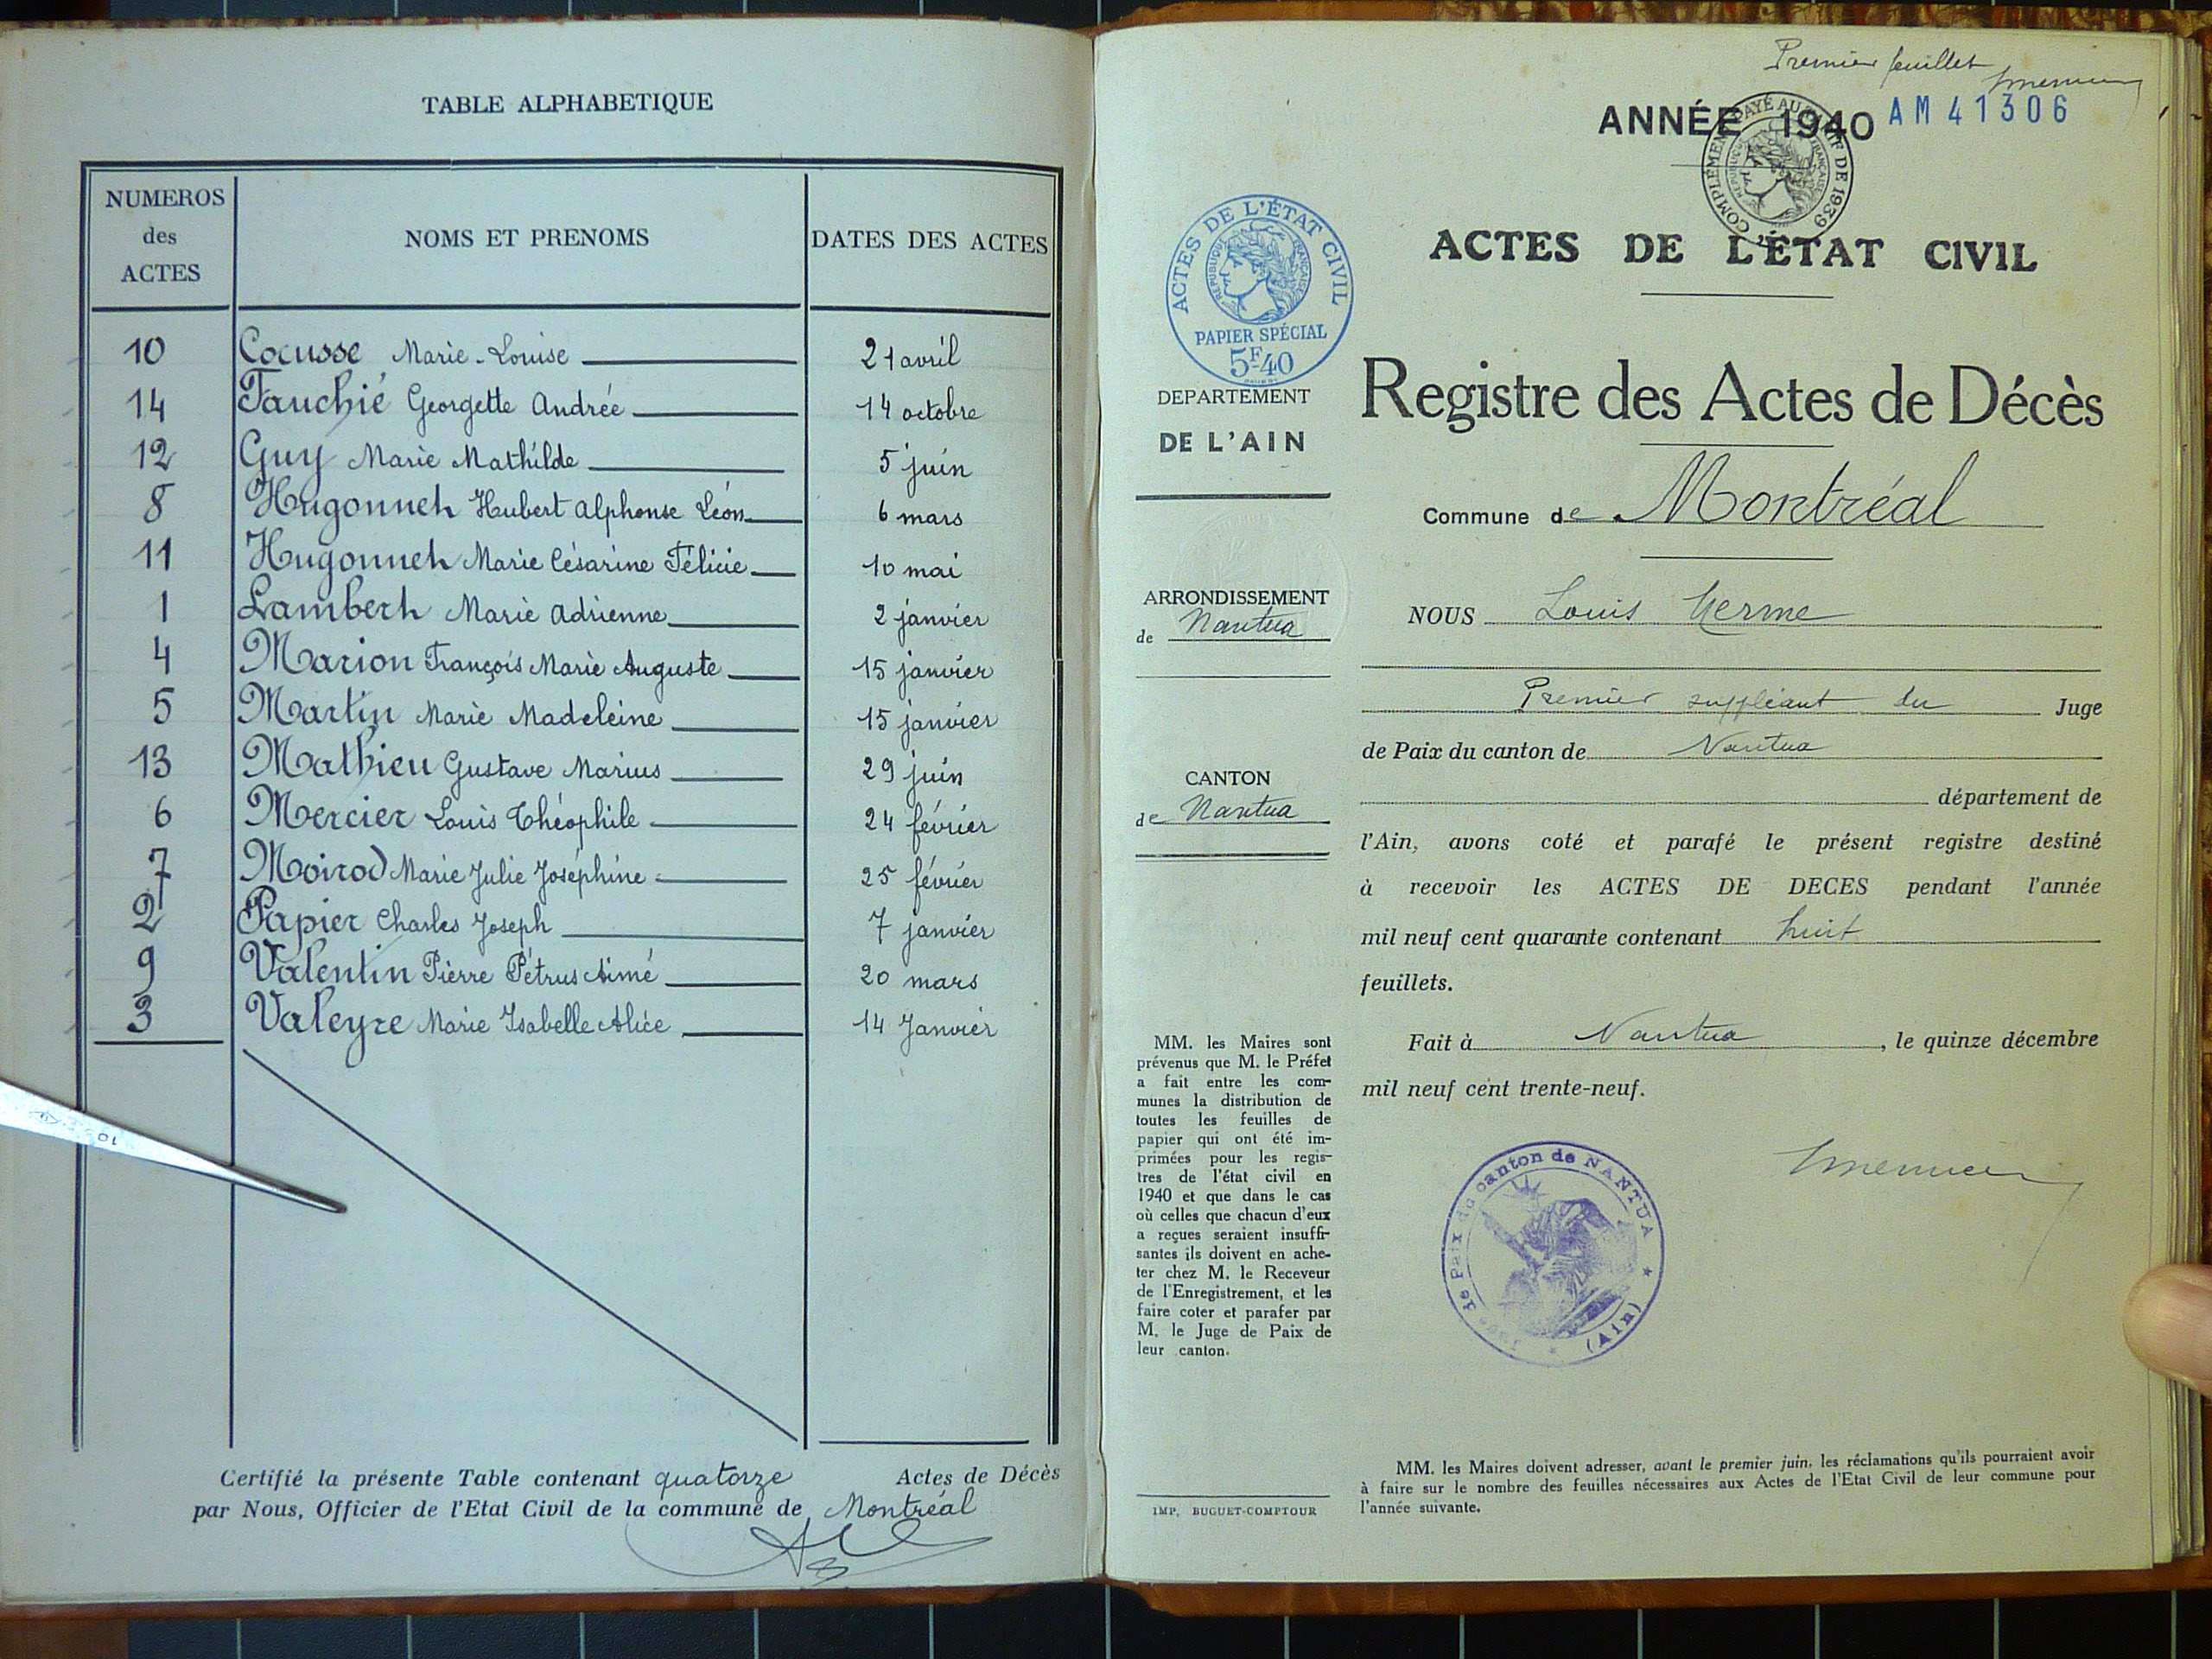 TABLE ALPHABETIQUE
NUMEROS des ACTES
NOMS ET PRENOMS
DATES DES ACTES
10 Cocusse Marie-Louise 21 avril
14 Fauchié Georgette Andrée 14 octobre
12 Guy Marie Mathilde 5 juin
8 Hugonnet Hubert Alphonse Léon 6 mars
11 Hugonnet Marie Césarine Félicie 10 mai
1 Lambert Marie Adrienne 2 janvier
4 Marion François Marie Auguste 15 janvier
5 Martin Marie Madeleine 15 janvier
13 Mathieu Gustave Marius 29 juin
6 Mercier Louis Théophile 24 février
7 Moirod Marie Julie Joséphine 25 février
2 Papier Charles Joseph 7 janvier
9 Valentin Pierre Pétrus Aimé 20 mars
3 Valeyre Marie Isabelle Alice 14 Janvier
Certifié la présente Table contenant quatorze Actes de Décès
par Nous, Officier de l'Etat Civil de la commune de Montréal
Premier feuillet
ANNÉE 1940 AM 41306
COMPLÉMENT PAYÉ AU TARIF DE 1939
RÉPUBLIQUE FRANÇAISE
ACTES DE L'ÉTAT CIVIL
ACTES DE L'ÉTAT CIVIL
RÉPUBLIQUE FRANÇAISE
PAPIER SPÉCIAL
5F40
DEPARTEMENT
DE L'AIN
ARRONDISSEMENT
de Nantua
CANTON
de Nantua
MM. les Maires sont
prévenus que M. le Préfet
a fait entre les com-
munes la distribution de
toutes les feuilles de
papier qui ont été im-
primées pour les regis-
tres de l'état civil en
1940 et que dans le cas
où celles que chacun d'eux
a reçues seraient insuffi-
santes ils doivent en ache-
ter chez M. le Receveur
de l'Enregistrement, et les
faire coter et parafer par
M. le Juge de Paix de
leur canton.
IMP. BUGUET-COMPTOUR
Registre des Actes de Décès
Commune de Montréal
NOUS Louis
Premier suppléant du Juge
de Paix du canton de Nantua
département de
l'Ain, avons coté et parafé le présent registre destiné
à recevoir les ACTES DE DECES pendant l'année
mil neuf cent quarante contenant huit
feuillets.
Fait à Nantua, le quinze décembre
mil neuf cent trente-neuf.
Juge de Paix du Canton de NANTUA
(Ain)
MM. les Maires doivent adresser, avant le premier juin, les réclamations qu'ils pourraient avoir
à faire sur le nombre des feuilles nécessaires aux Actes de l'Etat Civil de leur commune pour
l'année suivante.